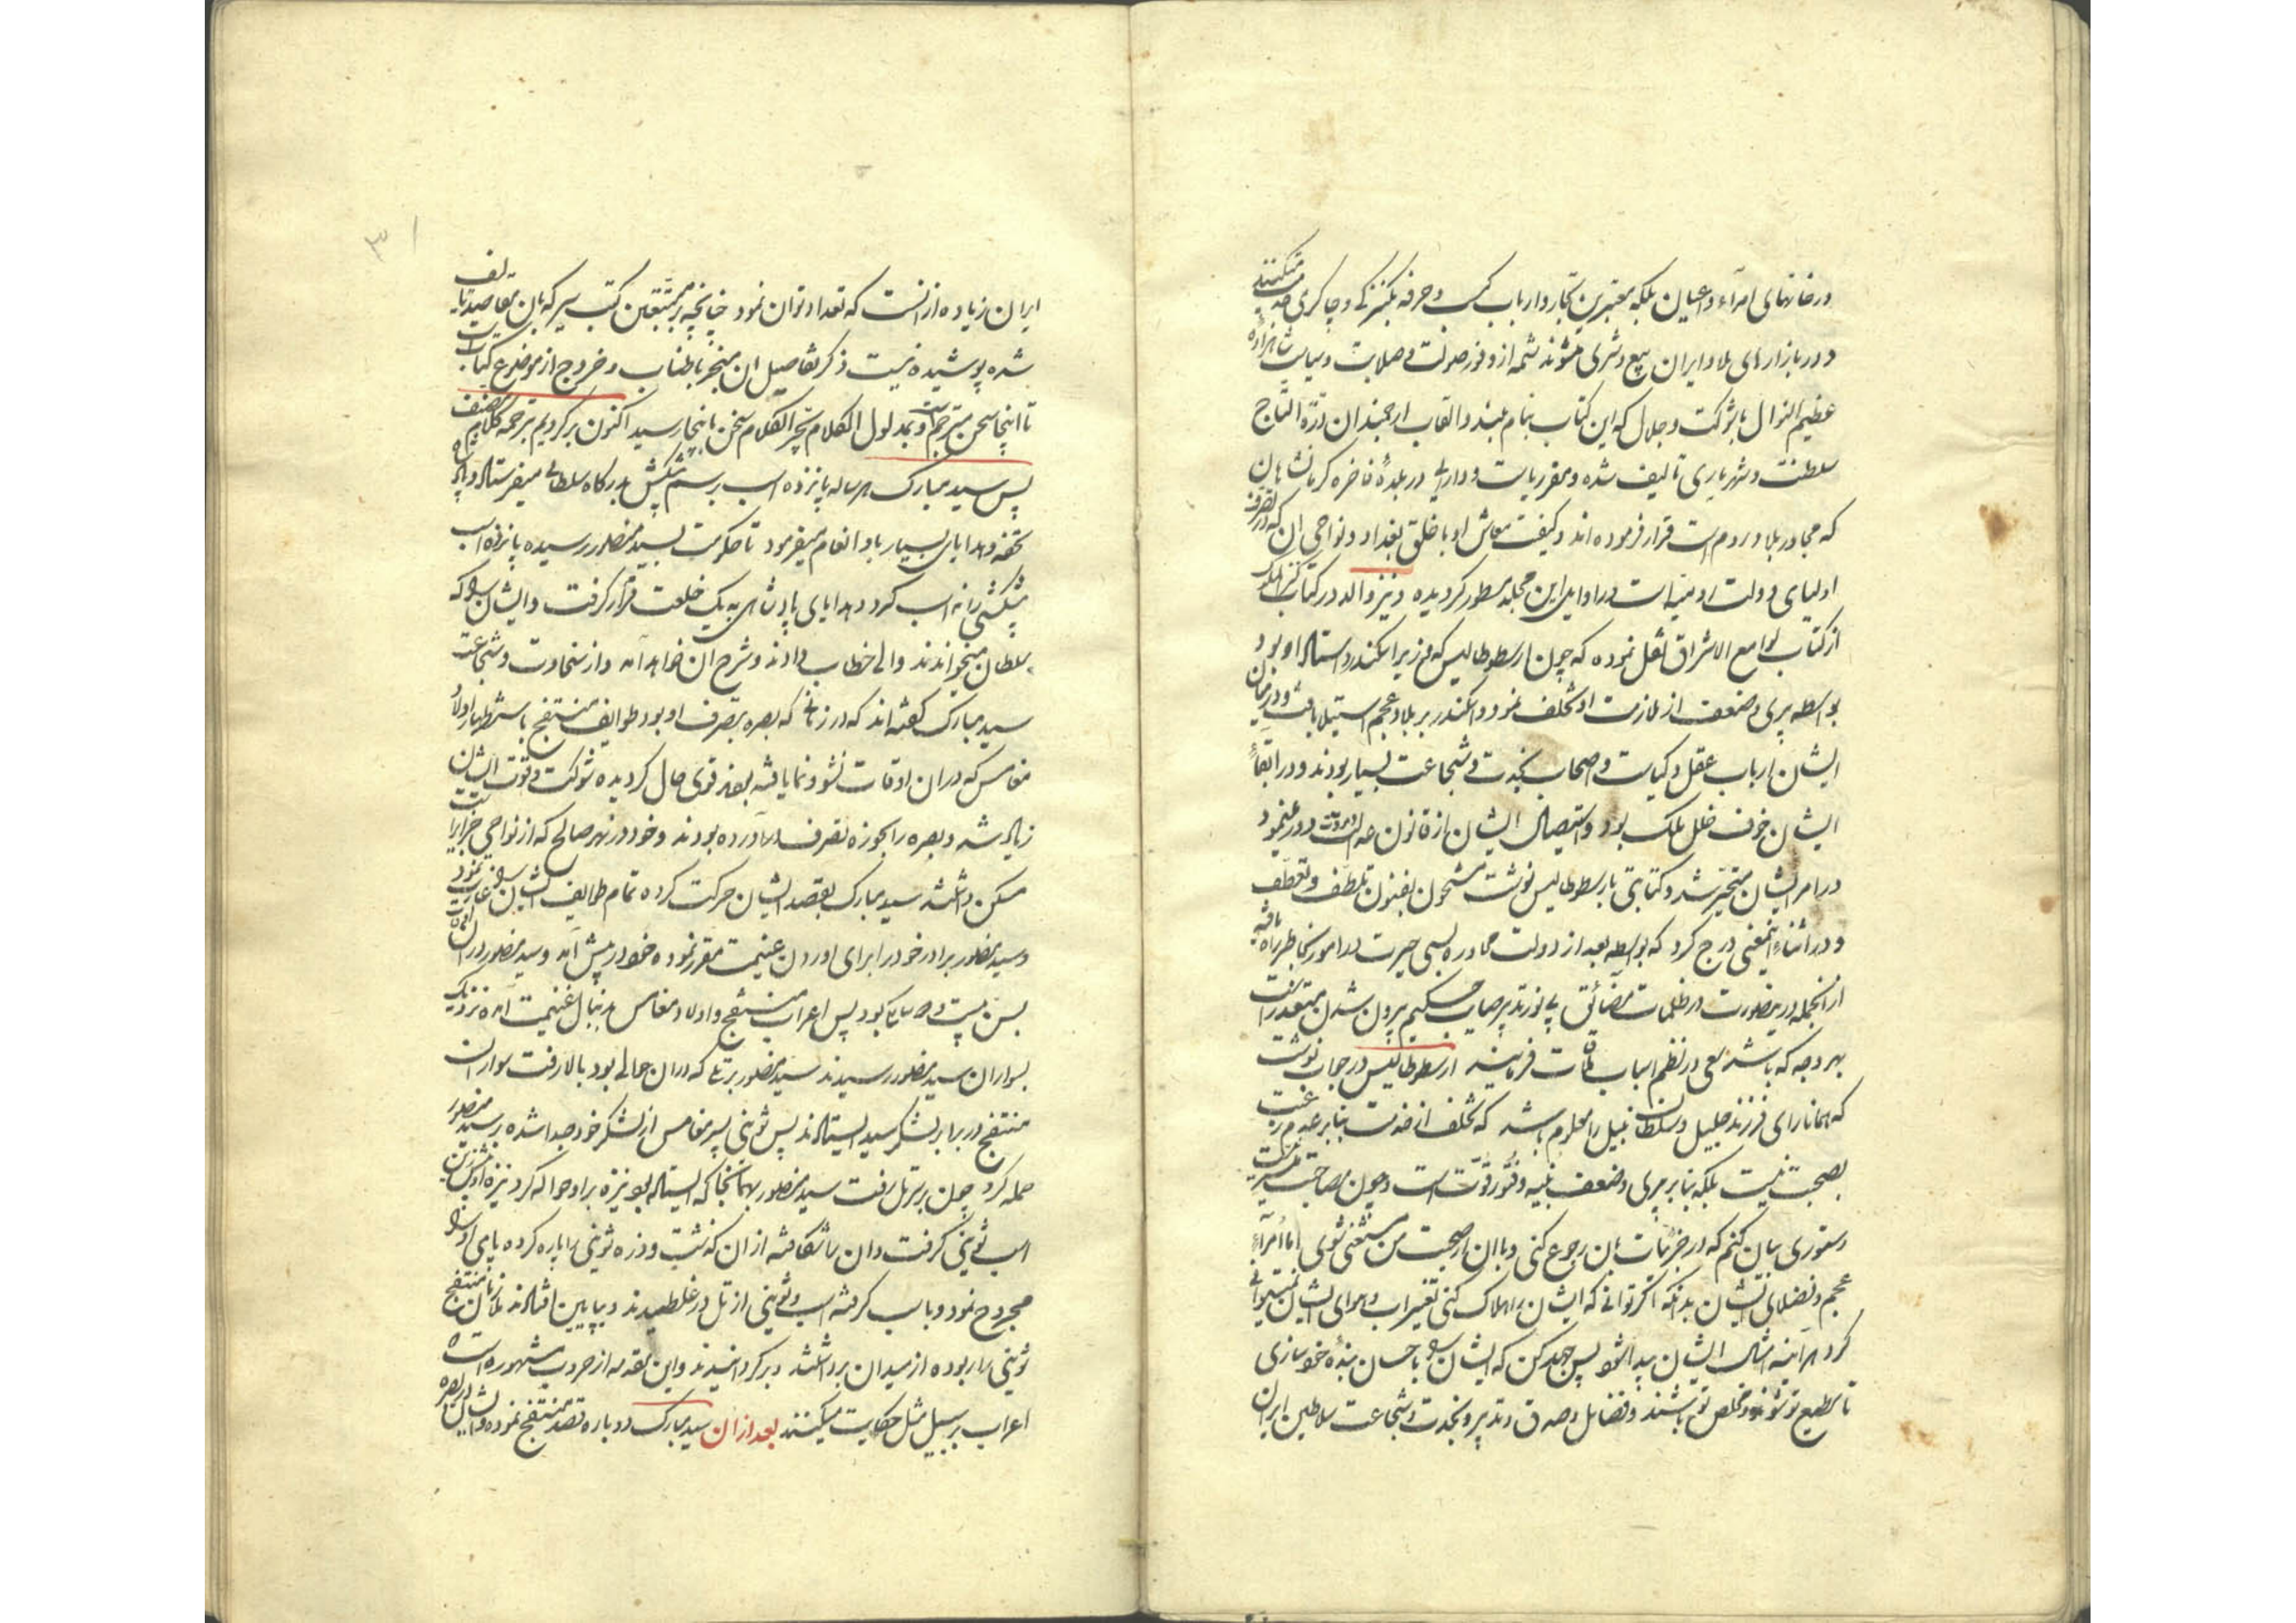 در خانهای امرآء و اعیان بلکه معتبرین تجار و ارباب کسب و حرفه بکنیزکی و چاکری خدمت میکنند
و در بازارهای بلاد ایران بیع و شری میشوند شمه از وفور صولت و صلابت و سیاست شاهزاده
عظیم النوال با شوکت و جلال که این کتاب بنام بلند و القاب ارجمند ان درّة التاج
سلطنت و شهریاری تالیف شده و مقر ریاست و دارائی در بلدهٔ فاخره کرمانشاهان
که مجاور بلاد روم است قرار فرموده اند و کیفیت معاش او با خلق بغداد و نواحی ان که در تصرف
اولیای دولت است در اوایل این مجله مسطور کردیده و نیز والد در کتاب
از کتاب لوامع الاشراق نقل نموده که چون ارسطوطالیس که وزیر اسکندر و استاد او بود
بواسطه پیری و ضعف از ملازمت او تخلف نمود و اسکندر بر بلاد عجم استیلا یافت و در میان
ایشان ارباب عقل و کیاست و اصحاب نجدت و شجاعت بسیار بودند و در ابقاء
ایشان خوف خلل ملک بود و استیصال ایشان از قانون عدالت و مروت دور مینمود
در امر ایشان متحیّر شد و کتابتی بارسطوطالیس نوشت مشحون بفنون تلطف و تعطف
و در اثناء اینمعنی درج کرد که بواسطه بعد از دولت محاوره بسی حیرت در امور بخاطر راه یافته
از انجمله در ینصورت در ظلمات مضائق بی نور تدبیر صایب حکیم بیرون شدن متعذر است
بهر وجه که باشد سعی در نظم اسباب ملاقات فرمایند ارسطوطالیس در جواب نوشت
که همانا رای فرزند جلیل و سلطان نبیل را معلوم باشد که تخلف از خدمت بنا بر عدم رغبت
بصحبت نیست بلکه بنا بر پیری و ضعف بنیه و فتور قوّت است و چون مصاحبت میسر نیست
دستوری بیان کنم که در جزئیات بان رجوع کنی و باان از صحبت من مستغنی شوی اما امرآء
عجم و فضلای ایشان بدانکه اگر توانی که ایشان را هلاک کنی تغییر اب و هوای ایشان نمیتوانی
کرد هر آینه امثال ایشان پیدا شود پس جهد کن که ایشان را باحسان بندهٔ خود سازی
تا مطیع تو شوند و مخلص تو باشند و فضایل و صدق و تدبیر و نجدت و شجاعت سلاطین ایران
۳۱
ایران زیاده از انست که تعداد توان نمود چنانچه بر متتبّعین کتب سیر که بان مقاصد تالیف
شده پوشیده نیست ذکر تفاصیل ان منجر باطناب و خروج از موضوع کتابست
تا اینجا سخن مترجم است و بمدلول الکلام یجر الکلام سخن باینجا رسید اکنون برکردیم بترجمه کلام مصنف
پس سید مبارک هر ساله پانزده اسب برسم پیشکش بدرکاه سلطانی میفرستاد و پادشاه
تحفه و هدایای بسیار باو انعام میفرمود تا حکومت بسید منصور رسیده پانزده اسب
پیشکشی را نه اسب کرد و هدایای پادشاهی به یک خلعت قرار کرفت و ایشان را که
سلطان میخواندند والی خطاب دادند و شرح ان خواهد آمد و از سخاوت و شجاعت
سید مبارک کفته اند که در زمانی که بصره بتصرف او بود طوایف منتفج باستظهار اولاد
مغامس که در ان اوقات نشو و نما یافته بعد قوی حال کردیده شوکت و قوت ایشان
زیاد شد و بصره را بحوزه تصرف در آورده بودند و خود در نهر صالح که از نواحی جزایر است
مسکن داشتند سید مبارک بقصد ایشان حرکت کرده تمام طوایف ایشان را غارت نمود
و سید منصور برادر خود را برای اوردن غنیمت مقرر نموده خود در پیش آمد و سید منصور در ان اوقات
بسن بیست و یک بود پس اعراب منتفج و اولاد مغامس بدنبال غنیمت آمده نزدیک
بسواران سید منصور رسیدند سید منصور برتلی که در ان حوالی بود بالا رفت سواران
منتفج در برابر لشکر سید ایستادند پس ثوینی پسر مغامس از لشکر خود جدا شده بر سید منصور
حمله کرد چون بر سر تل رفت سید منصور بهمانجا که ایستاده بود نیزه بر او حواله کرد نیزه او بر زین
اسب ثوینی کرفت و ان را شکافته از ان کذشت و زره ثوینی را پاره کرده پای او را
مجروح نمود و با سب کرفته اسب و ثوینی از تل در غلطیدند و بپایین افتادند غلامان منتفج
ثوینی را ربوده از میدان برداشتند و برکردانیدند و این مقدمه از حروب مشهوره است
اعراب بر سبیل مثل حکایت میکنند بعد از ان سید مبارک دوباره قصد منتفج نموده و ایشان در بصره